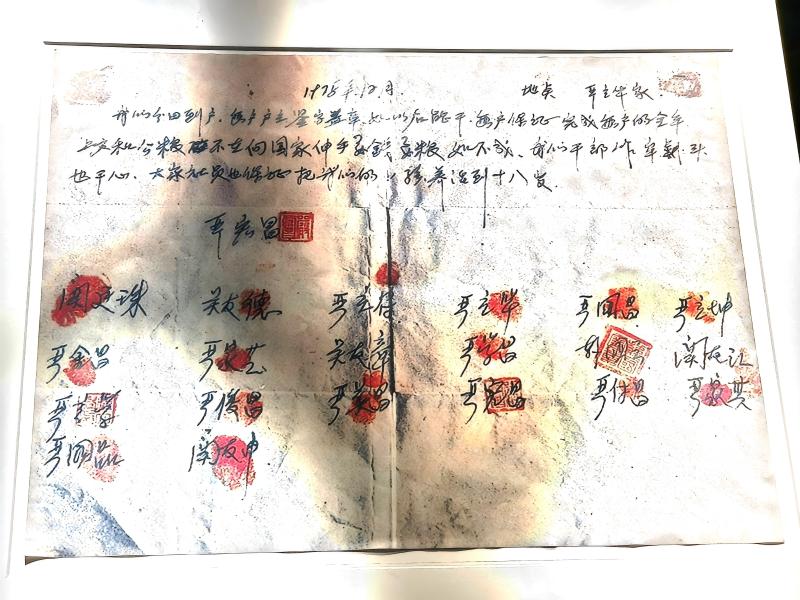 1978年12月 地点 严立华家
我们分田到户，每户户主签字盖章，如以后能干，每户保证完成每户的全年
上交和公粮，不在向国家伸手要钱要粮，如不成，我们干部作牢杀头
也干心，大家社员也保证把我们的小孩养活到十八岁。
严宏昌
关廷珠 关友德 严立符 严立华 严国昌 严立坤
严金昌 严家芝 关友章 严学昌 韩国云 关友江
严立学 严俊昌 严美昌 严宏昌 严付昌 严家其
严国品 关友申